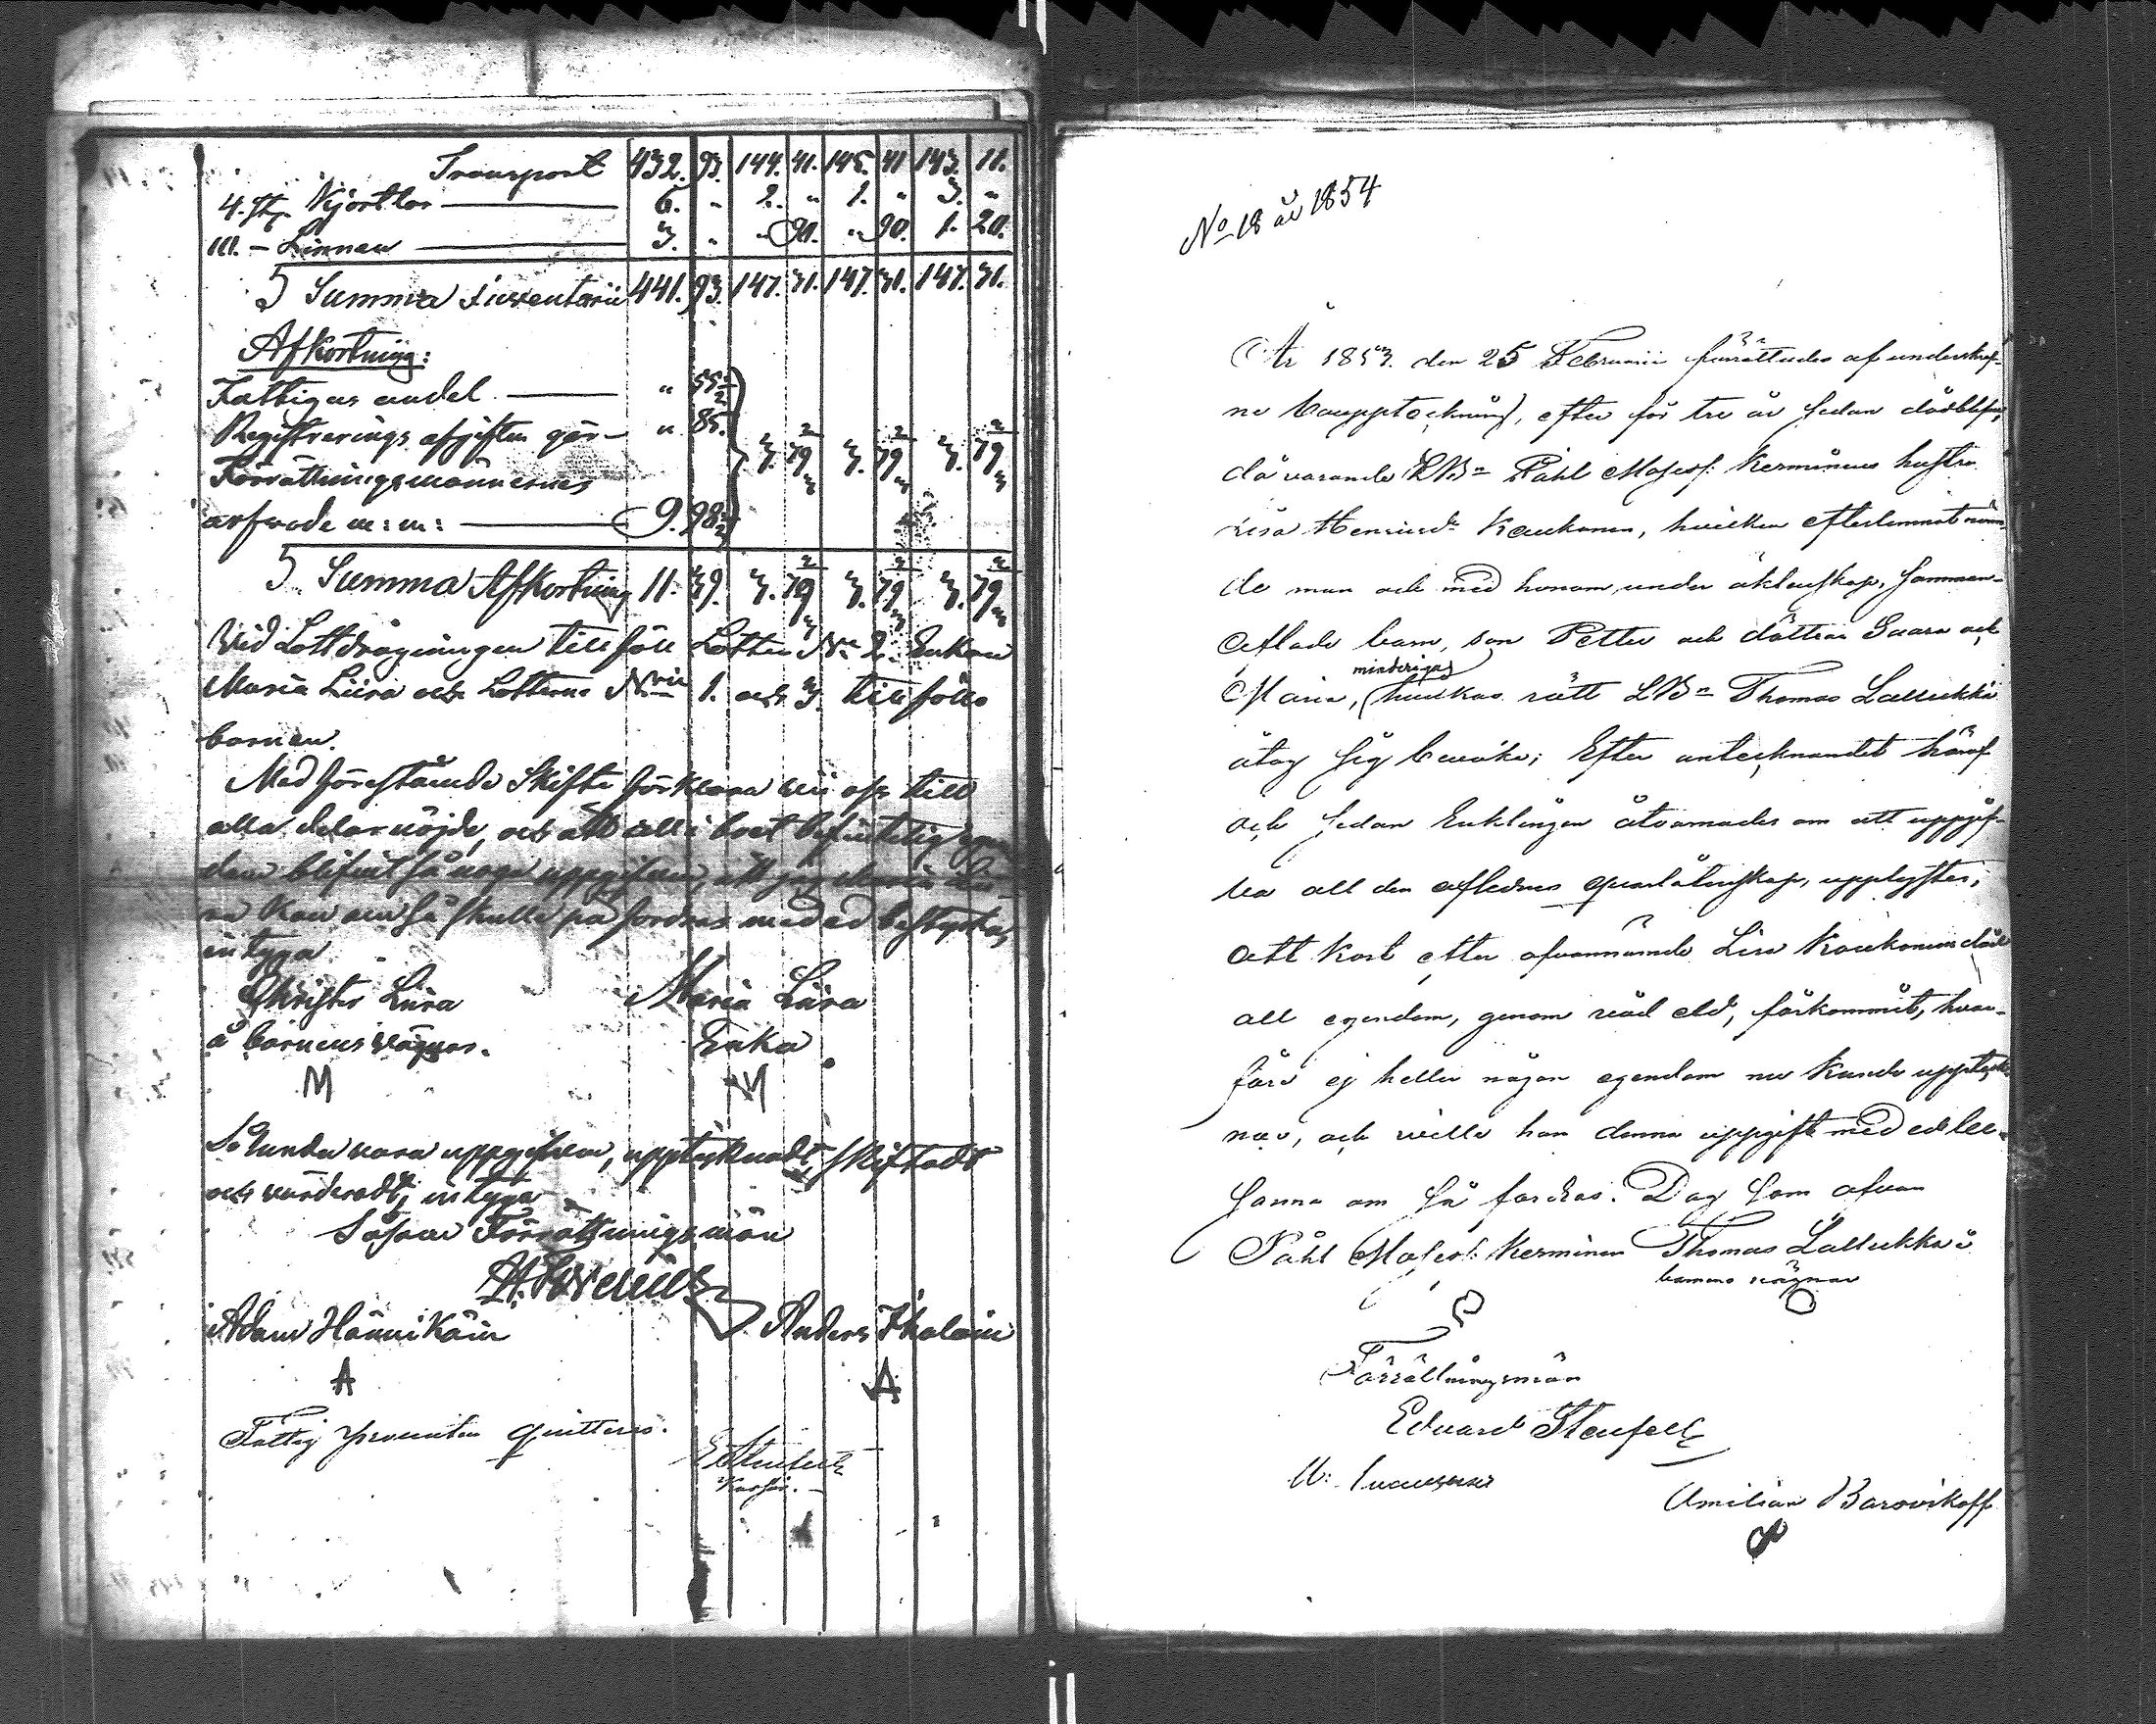 Transport 432. 93. 144. 41. 145. 41 143. 11.
4. st. Kjortlar 6. " 2. " 1. " 3. "
10. - Linnen 3. " " 90. " 90. 1. 20.
S Summa Inventarii 441. 93. 147. 31. 147. 31. 147. 31.
Afkortning:
Fattigas andel "
Registrerings afgiften gör - " 85.
Förrättningsmännernes
arfvode m: m: 9. 98½
3. 79 3. 79 3. 79
S Summa Afkortning 11. 39. 3. 79 3. 79 3. 79
Vid Lottdragningen tillföll Lotten No 2. Enkan
Maria Liira och Lotterne Nris 1. och 3. tillföllo
barnen.
Med förestående Skifte förklara vii oss till
alla delar nöjde, och att all i boet befintelig
dom blifvit så noga uppgifven, att
ra kan om så skulle på fordras med ed bestyrka,
intyga
Christer Liira Maria Liira
å barnens vägnar. Enka
M M
Sålunda vara uppgifven, uppteknadt, skiftadt
och värderadt, intyga
Såsom Förrättningsmän
Adam Hännikäin Anders Ikoläin
A A
Fattig procenten quitteras.
Kassör.
No 18 år 1854
År 1853. den 25 Februarii förrättades af underskref-
ne bouppteckning, efter för tre år sedan dödblefne,
då varande LBn Påhl Mosesf: Kerminens hustru
Lisa Henriksd: Kaukonen, hvilken efterlemnat nämn-
de man och med honom under äktenskap, samman-
aflade barn, son Petter och döttrar Saara och
Maria, minderiga, hvilkas rätt LBn Thomas Lallukka
åtog sig bevaka; Efter antecknandet häraf
och sedan Enklingen åtvarnades om att uppgif-
va all den aflednes qvarlåtenskap, upplystes,
att kort efter ofvannämnde Lisa Kaukonens död
all egendom, genom våd eld, förkommit, hvar-
före ej heller någon egendom nu kunde uppteck-
nas, och ville han denna uppgift med ed be-
sanna om så fordras. Dag som ofvan
Påhl Mosesf: Kerminen Thomas Lallukka å
barnens vägnar
Förrättningsmän
Eduard Stenfelt
Amilian Barovikoff